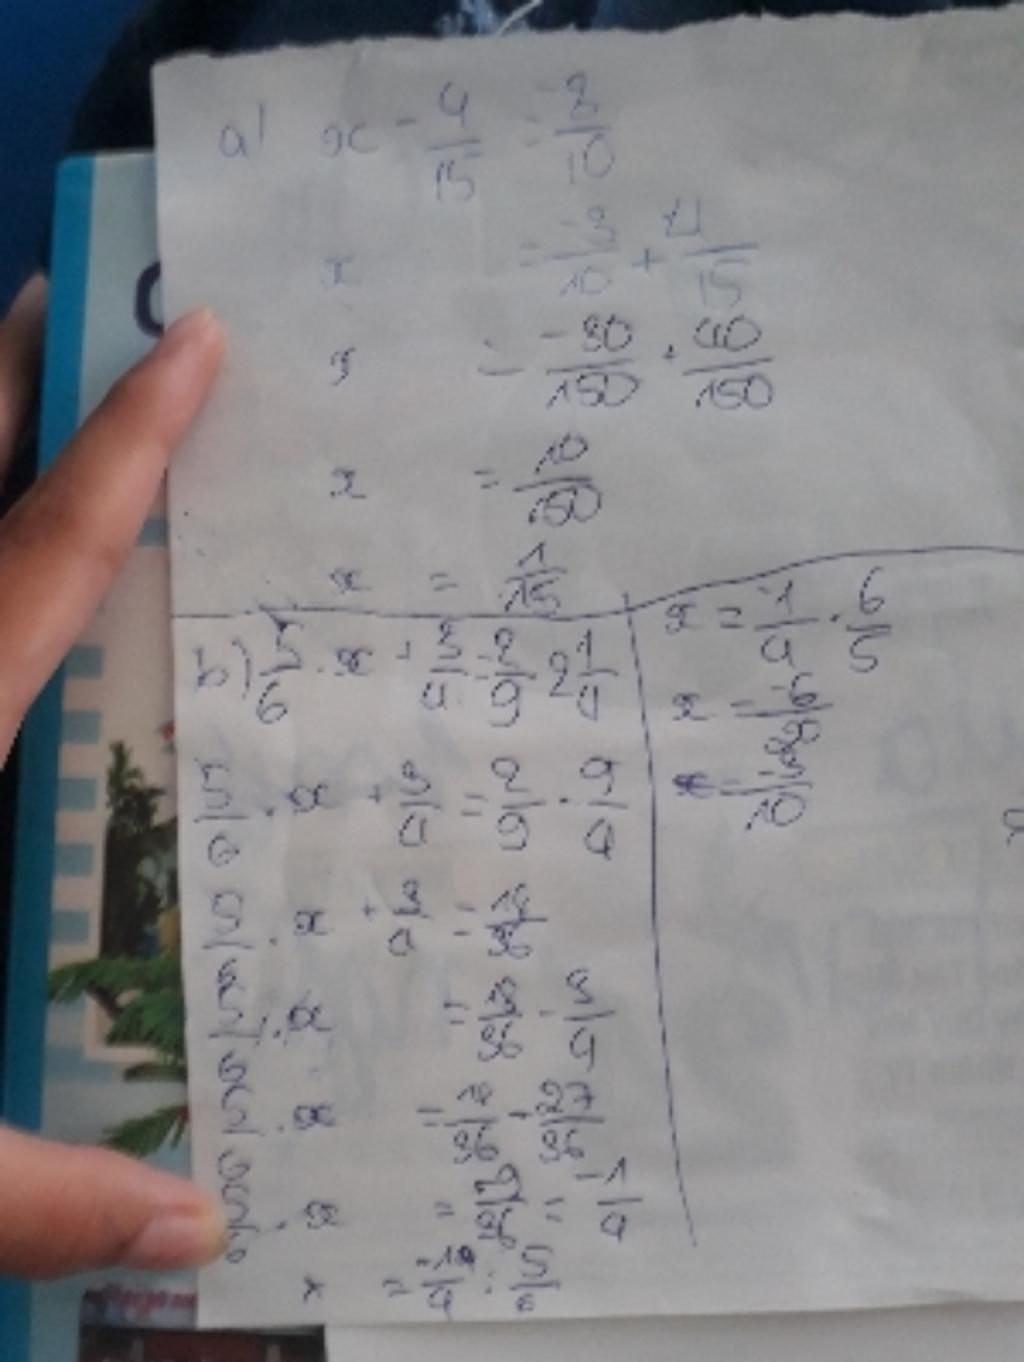 a) x - 4/15 = -3/10
x = -3/10 + 4/15
x = -30/150 + 40/150
x = 10/150
x = 1/15
b) 5/6 . x + 3/4 = 2/9 . 2 1/4
5/6 . x + 3/4 = 2/9 . 9/4
5/6 . x + 3/4 = 18/36
5/6 . x = 18/36 - 3/4
5/6 . x = 18/36 - 27/36
5/6 . x = -9/36 = -1/4
x = -1/4 : 5/6
x = -1/4 . 6/5
x = -6/20
x = -3/10